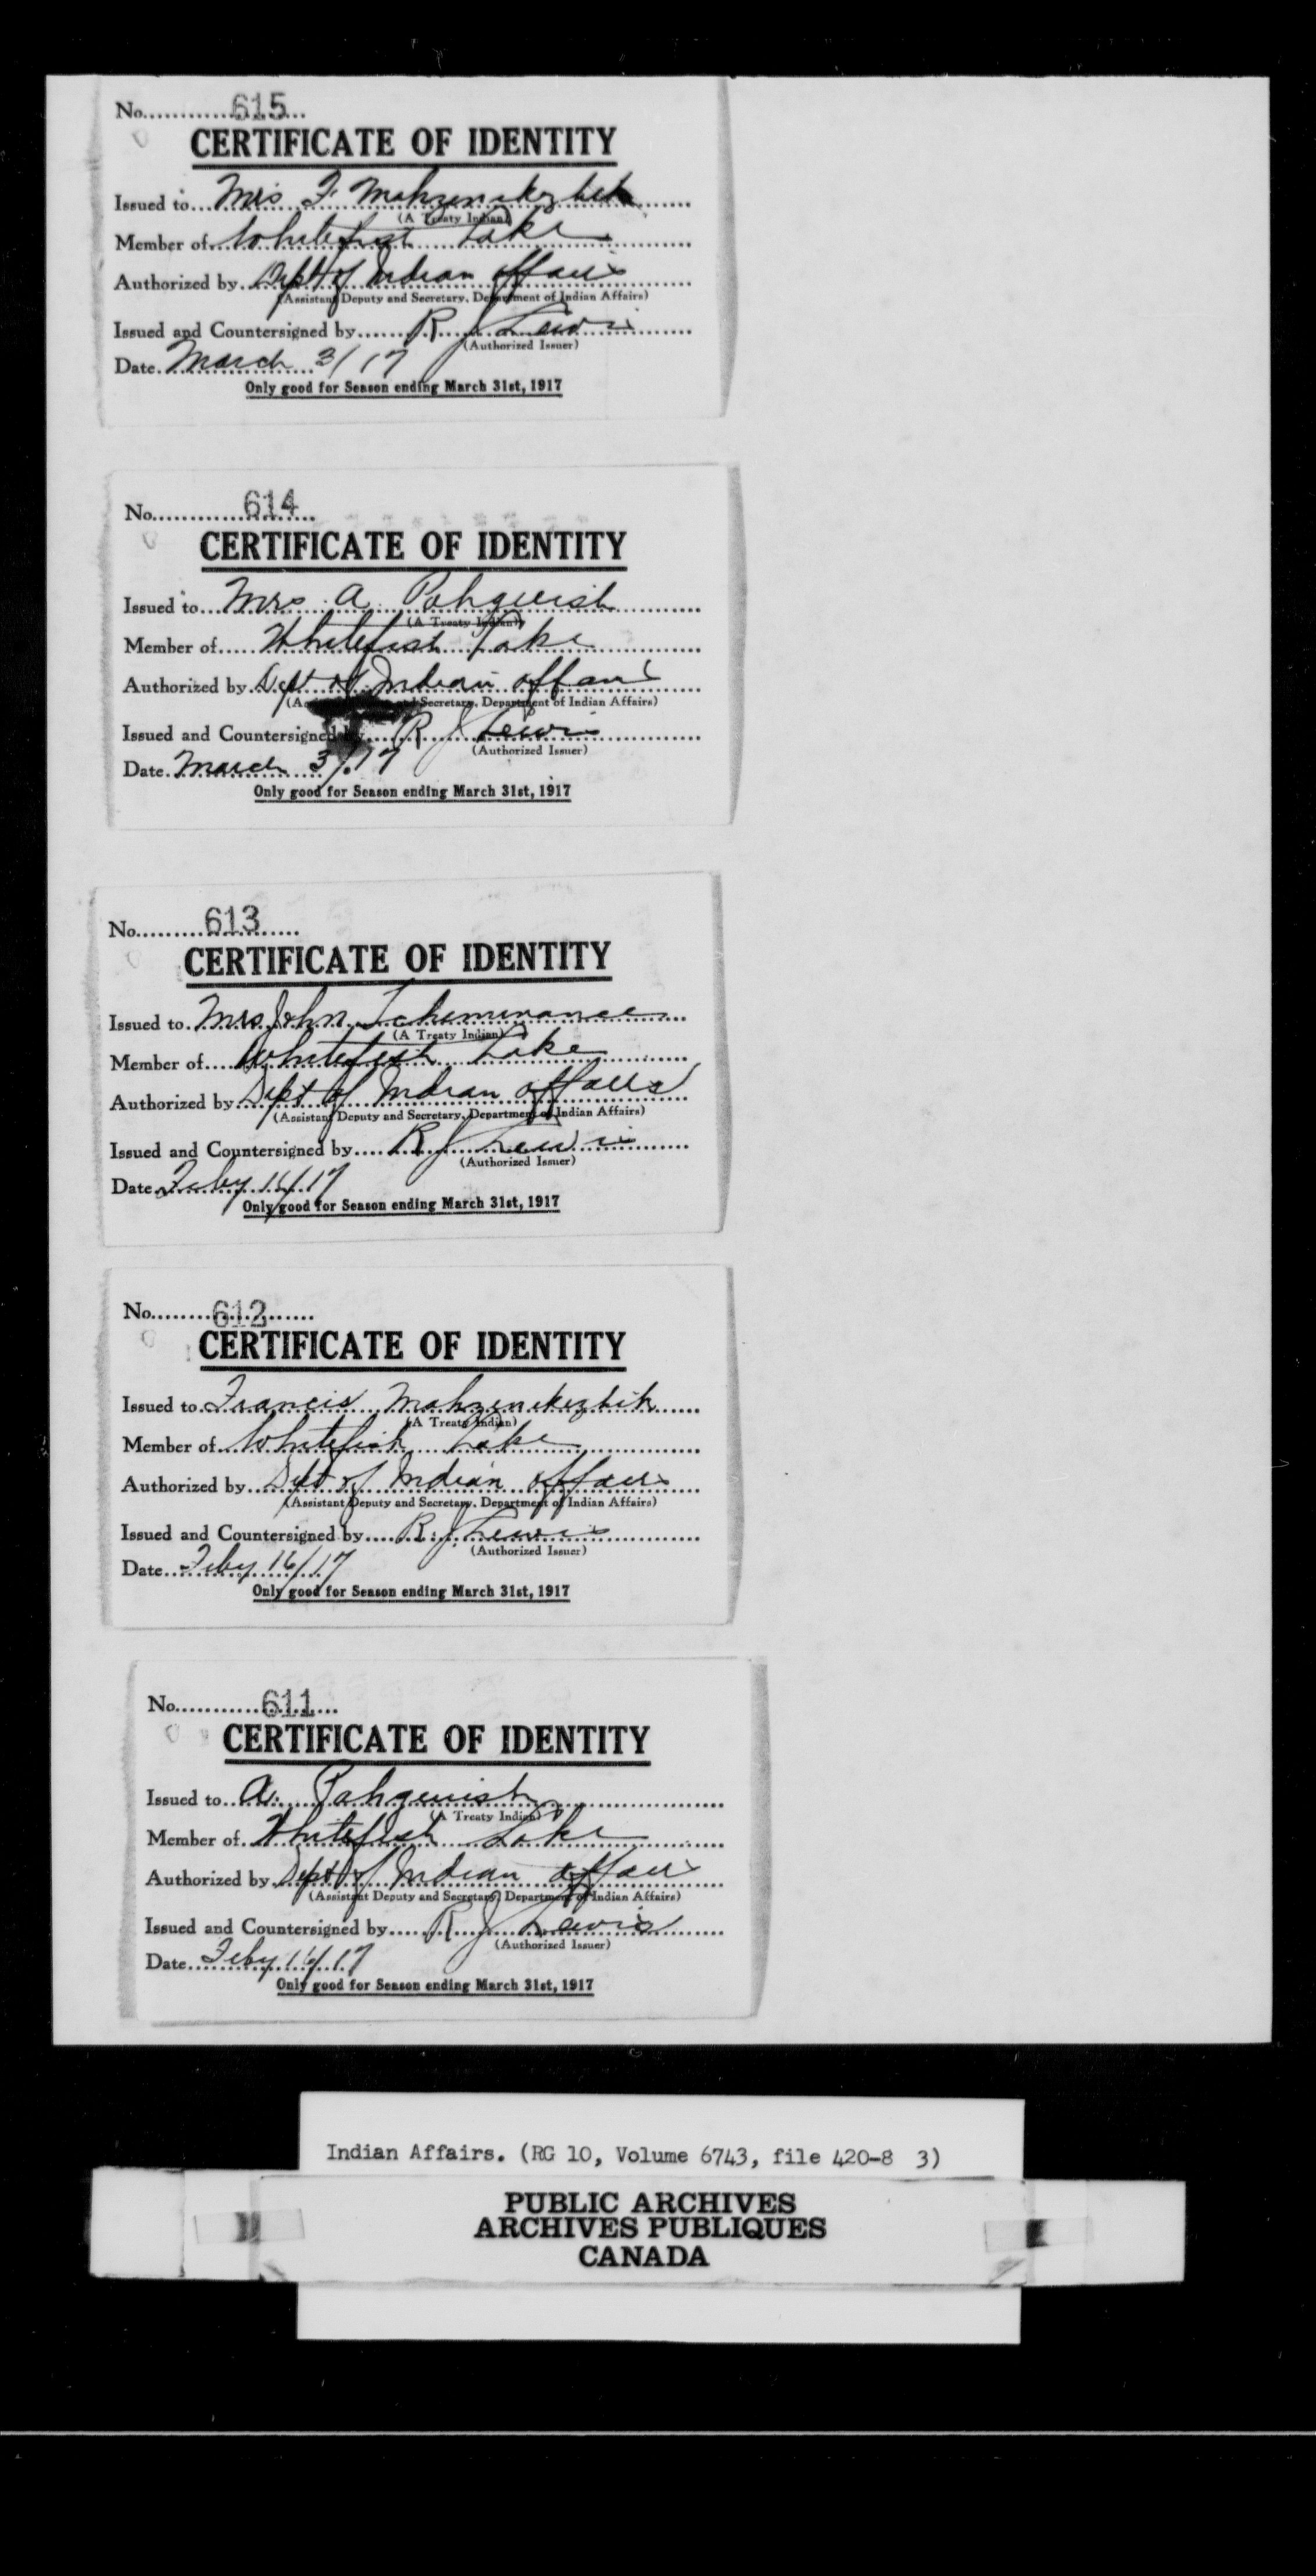 No. 615
CERTIFICATE OF IDENTITY
Issued to Mrs F. Mahzenekezhik
(A Treaty Indian)
Member of Whitefish Lake
Authorized by Dept of Indian Affairs
(Assistant Deputy and Secretary, Department of Indian Affairs)
Issued and Countersigned by R J Lewis
(Authorized Issuer)
Date March 3/17
Only good for Season ending March 31st, 1917
No. 614
CERTIFICATE OF IDENTITY
Issued to Mrs A. Pahquish
(A Treaty Indian)
Member of Whitefish Lake
Authorized by Dept of Indian Affairs
and Secretary, Department of Indian Affairs)
Issued and Countersigned by R J Lewis
(Authorized Issuer)
Date March 3/17
Only good for Season ending March 31st, 1917
No. 613
CERTIFICATE OF IDENTITY
Issued to Mrs John
(A Treaty Indian)
Member of Whitefish Lake
Authorized by Dept of Indian Affairs
(Assistant Deputy and Secretary, Department of Indian Affairs)
Issued and Countersigned by R J Lewis
(Authorized Issuer)
Date Feby 16/17
Only good for Season ending March 31st, 1917
No. 612
CERTIFICATE OF IDENTITY
Issued to Francis Mahzenekezhik
(A Treaty Indian)
Member of Whitefish Lake
Authorized by Dept of Indian Affairs
(Assistant Deputy and Secretary, Department of Indian Affairs)
Issued and Countersigned by R. J. Lewis
(Authorized Issuer)
Date Feby 16/17
Only good for Season ending March 31st, 1917
No. 611
CERTIFICATE OF IDENTITY
Issued to A. Pahquish
(A Treaty Indian)
Member of Whitefish Lake
Authorized by Dept of Indian Affairs
(Assistant Deputy and Secretary, Department of Indian Affairs)
Issued and Countersigned by R J Lewis
(Authorized Issuer)
Date Feby 16/17
Only good for Season ending March 31st, 1917
Indian Affairs. (RG 10, Volume 6743, file 420-8 3)
PUBLIC ARCHIVES
ARCHIVES PUBLIQUES
CANADA